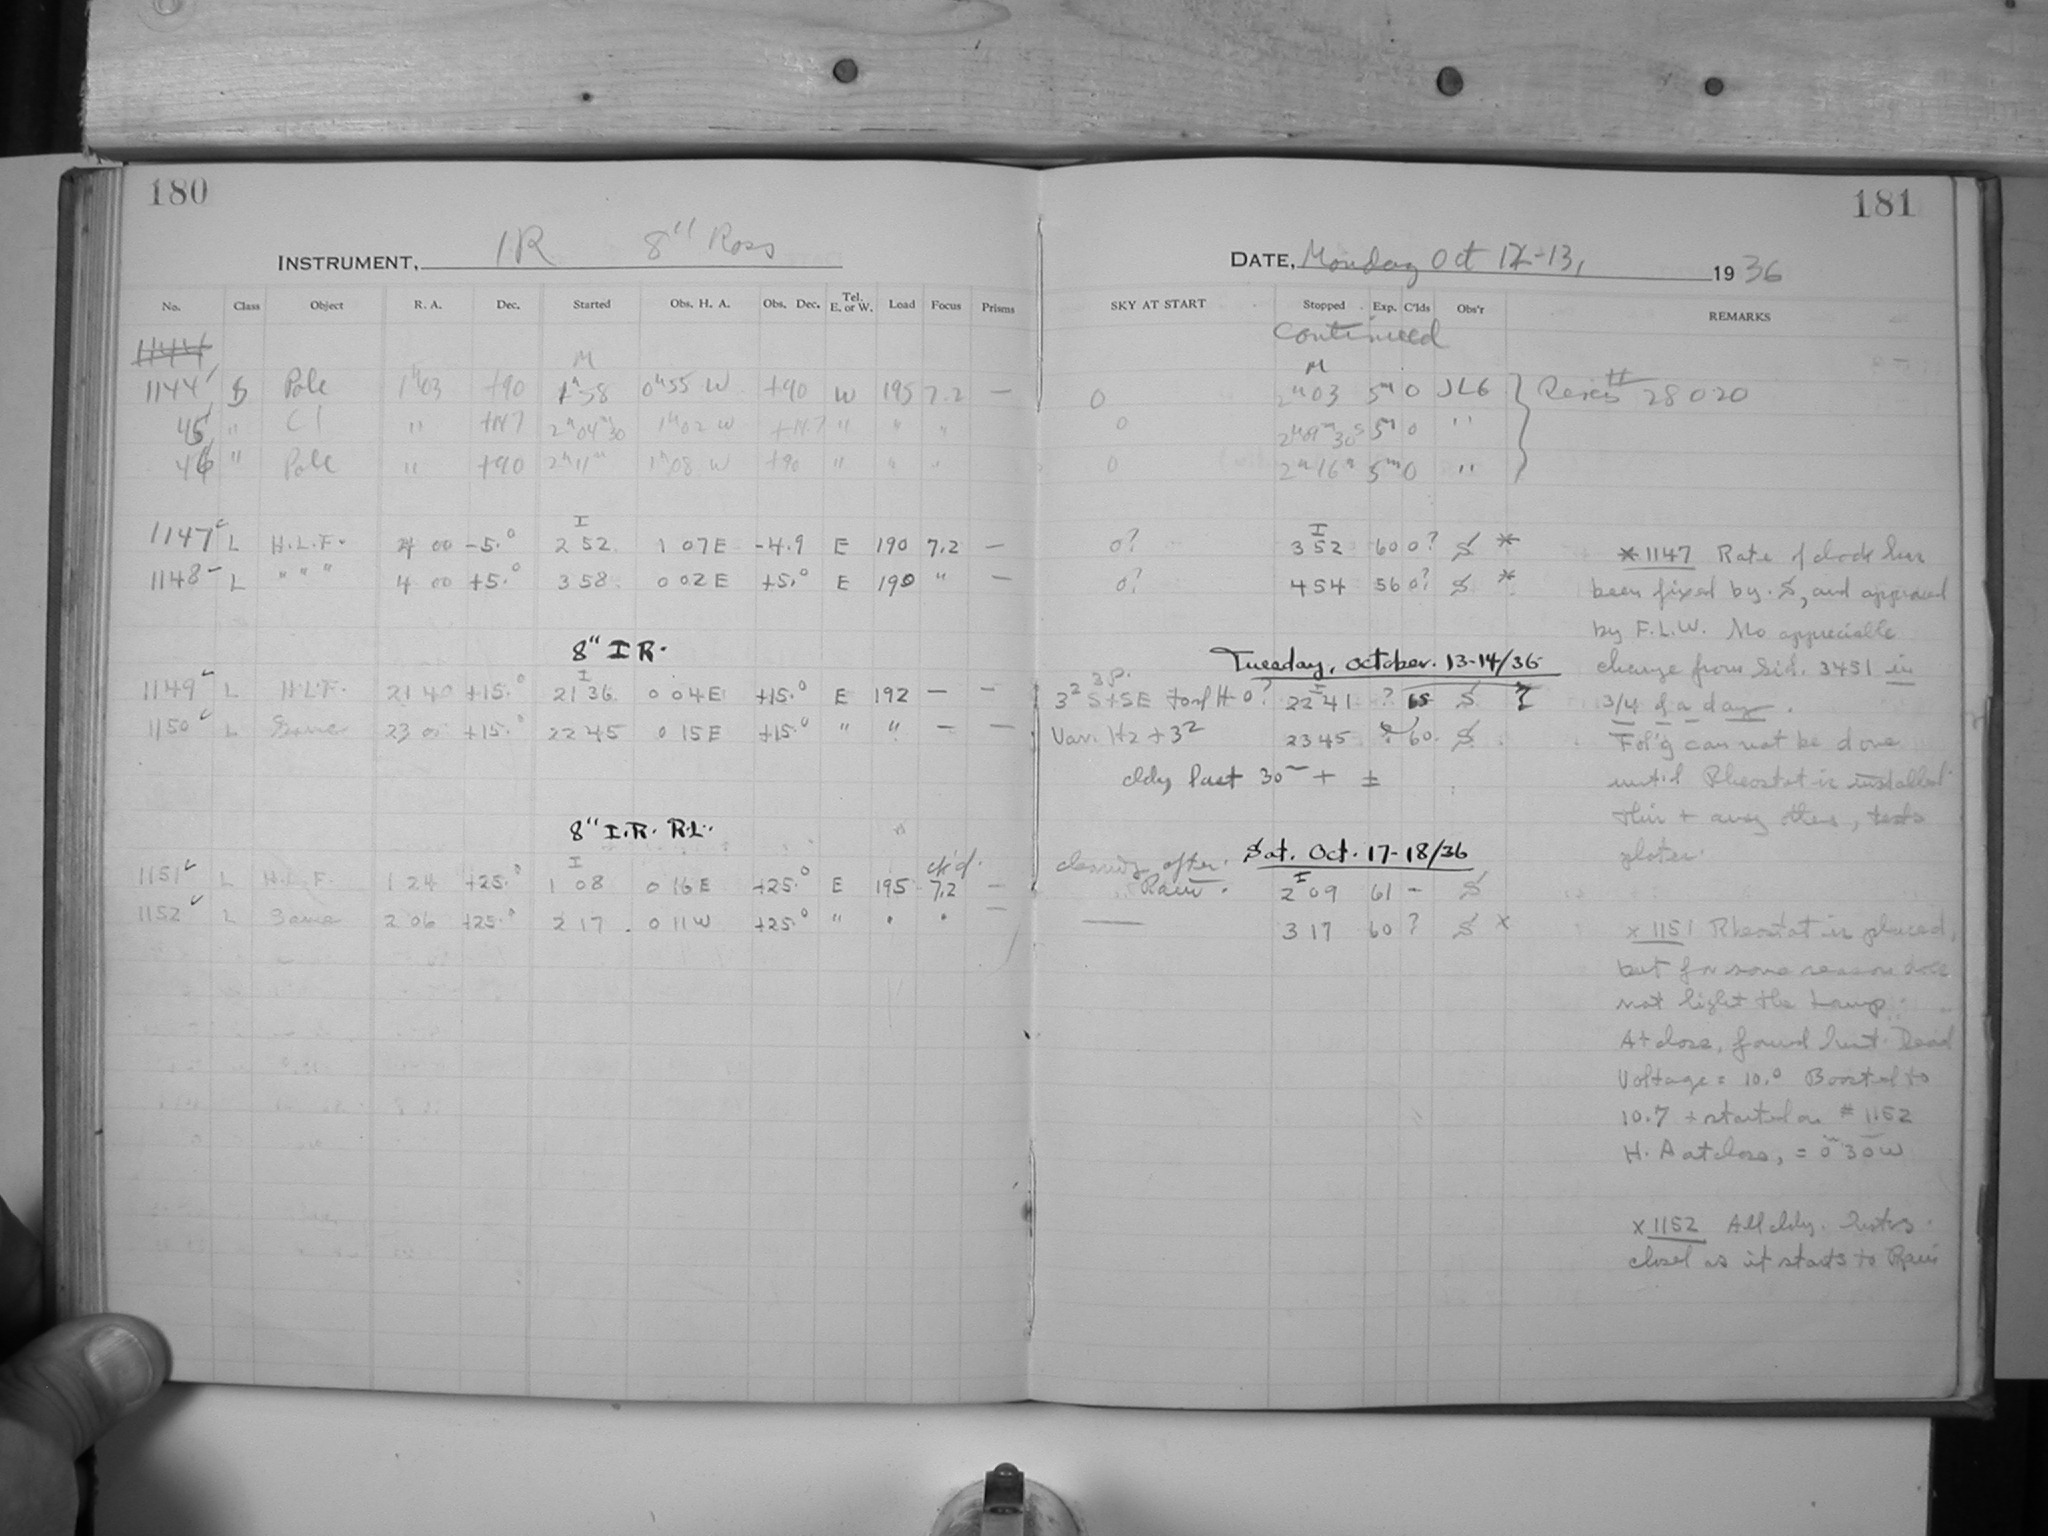 180
INSTRUMENT, IR 8" Ross
No. Class Object R. A. Dec. Started Obs. H. A. Obs. Dec. Tel. E. or W. Load Focus Prisms
1144
M
1144 B Pole 1h03 +90 1h58 0h55 W +90 W 195 7.2 —
45 " C1 " +47 2h04m30 1h02 W +47 " " "
46 " Pole " +90 2h11m 1h08 W +90 " " "
I
1147 L H.L.F. 4 00 -5.° 2 52 1 07 E -4.9 E 190 7.2 —
1148 L " " " 4 00 +5.° 3 58 0 02 E +5.° E 190 " —
8" I R.
I
1149 L H.L.F. 21 40 +15.° 21 36 0 04 E +15.° E 192 — —
1150 L Same 23 00 +15.° 22 45 0 15 E +15.° " " — —
8" I.R. R.L.
I
1151 L H.L.F. 1 24 +25.° 1 08 0 16 E +25.° E 195 7.2 —
1152 L Same 2 06 +25.° 2 17 0 11 W +25.° " " " —
181
DATE, Monday Oct 12-13, 1936
SKY AT START Stopped Exp. C'lds Obs'r REMARKS
Continued
M
0 2h03 5m 0 JLG 28020
0 2h09m30s 5m 0 "
0 2h16m 5m 0 "
I
0? 3 52 60 0? S *
0? 4 54 56 0? S *
*1147 Rate of clock has
been fixed by S, and approved
by F.L.W. No appreciable
change from Sid. 3451 in
3/4 of a day.
Fol'g can not be done
until Rheostat is installed
this + away others, tests
plates.
Tuesday, October. 13-14/36
3 P.
I
3² S+SE H 0? 22 41 ? 65 S
Var. H2 + 3² 23 45 ? 60. S
cldy last 30m + ±
Sat. Oct. 17-18/36
clearing after
Rain.
I
2 09 61 - S
— 3 17 60 ? S x
x 1151 Rheostat is placed,
but for some reason does
not light the Lamp.
At close, found Dead
Voltage = 10.° Boosted to
10.7 + started on # 1152
H. A at close, = 0 30 W
x 1152 All cldy.
closed as it starts to Rain